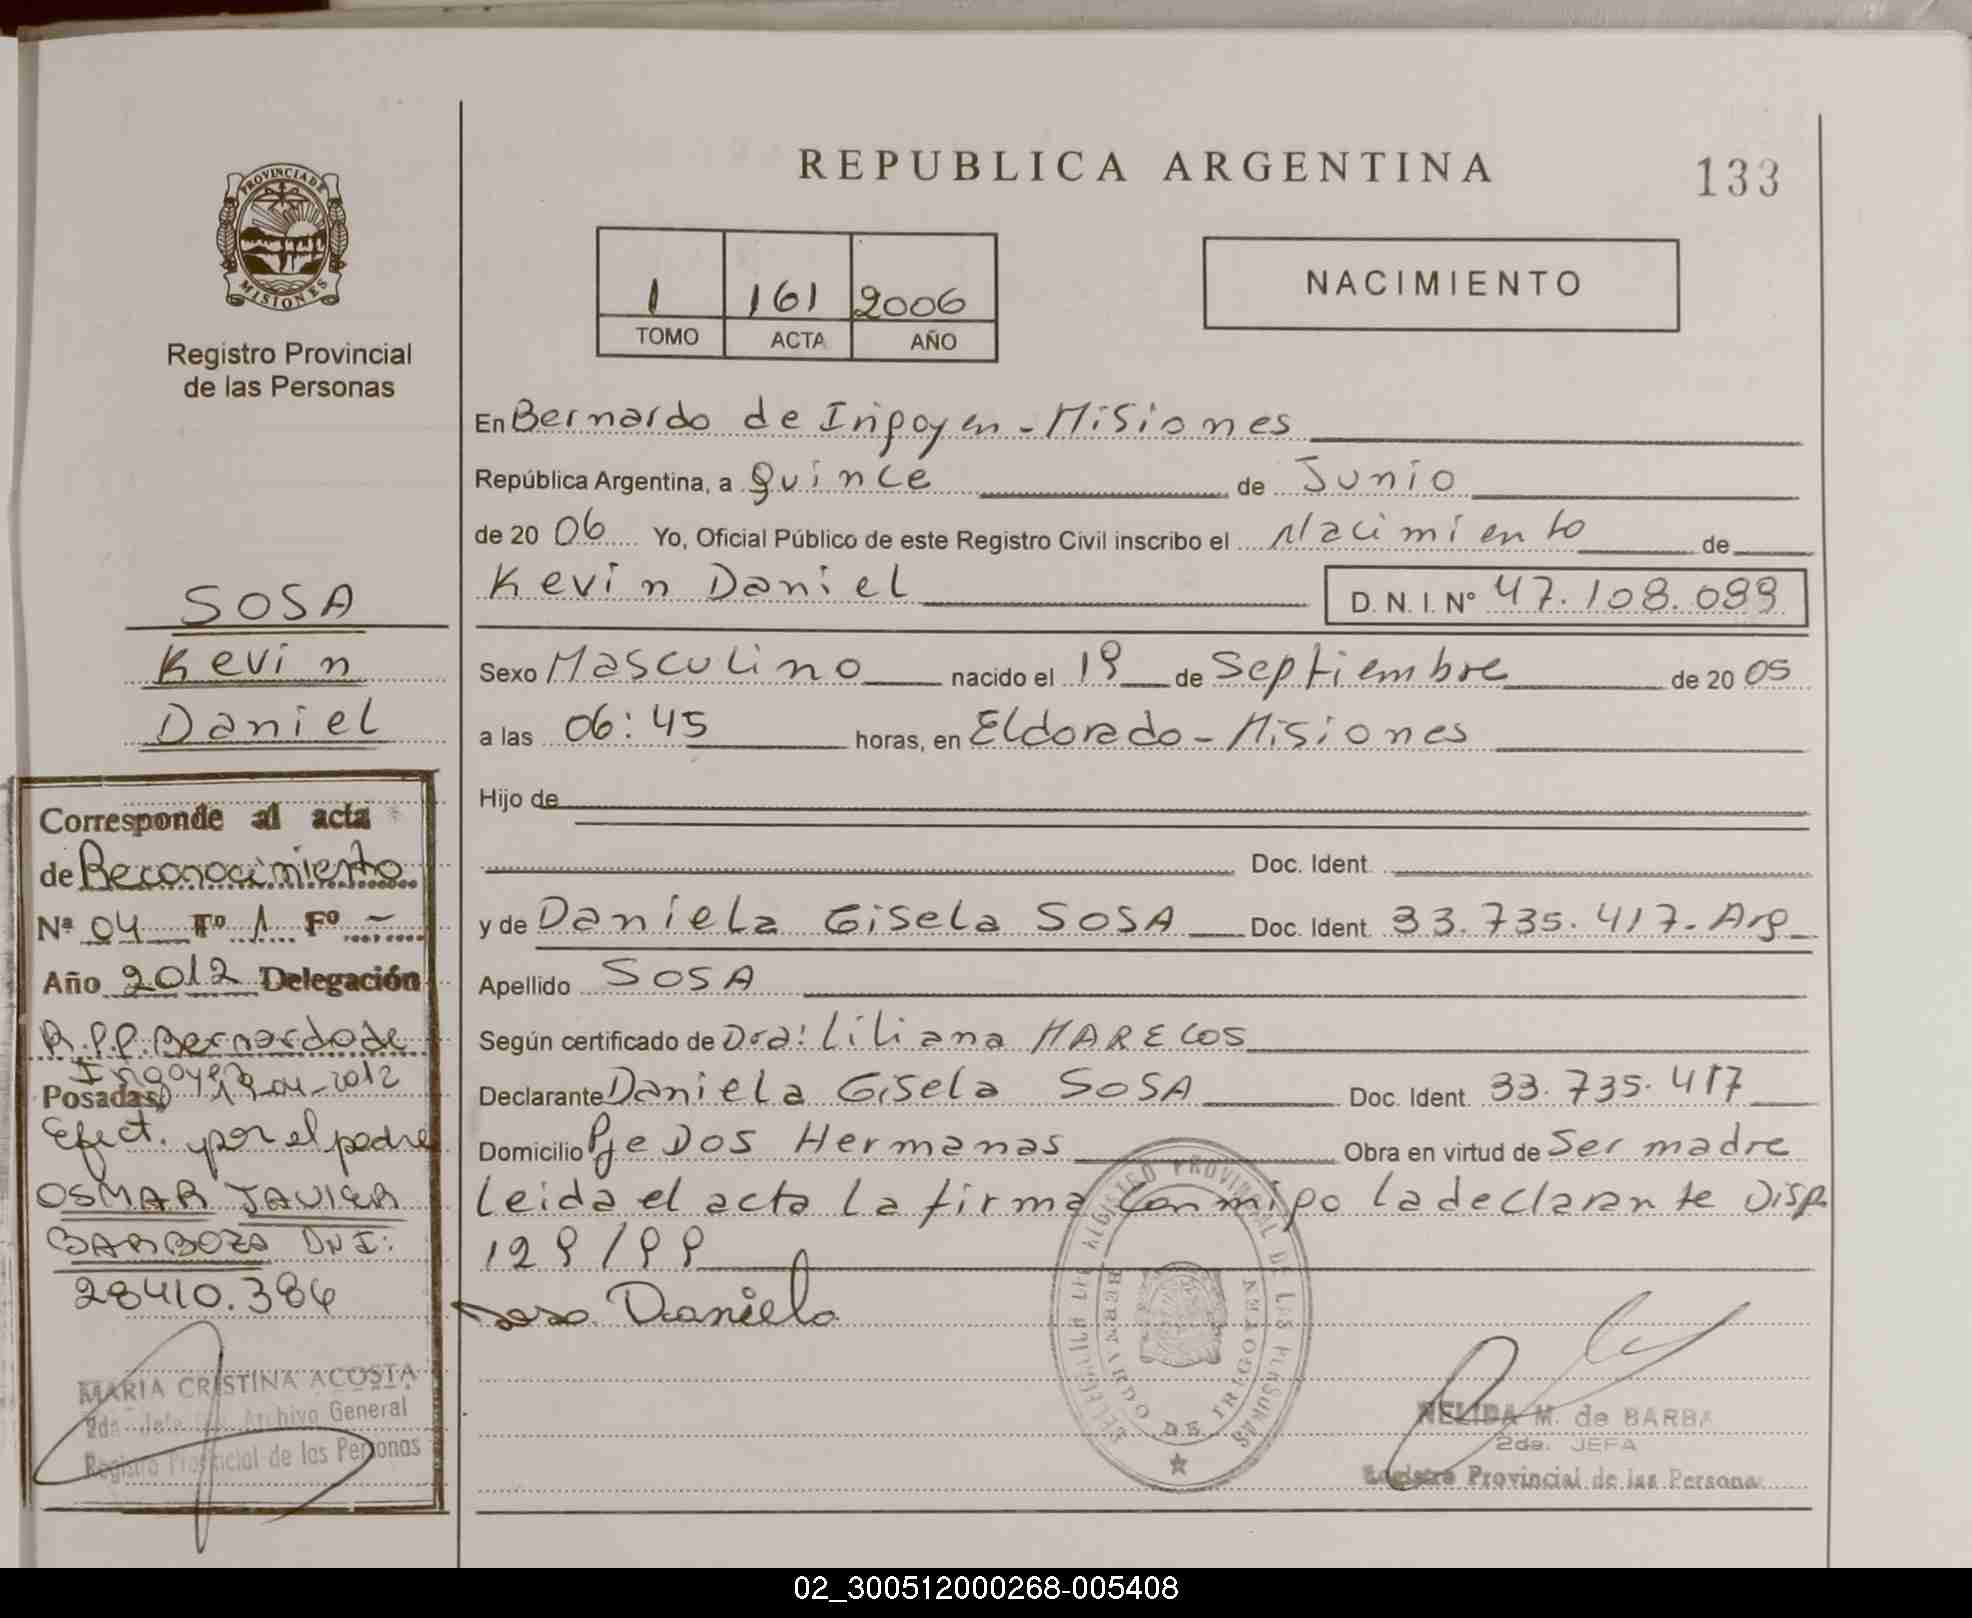 REPUBLICA ARGENTINA
133
PROVINCIA DE MISIONES
Registro Provincial
de las Personas
1 161 2006
TOMO ACTA AÑO
NACIMIENTO
En Bernardo de Irigoyen - Misiones
República Argentina, a Quince de Junio
de 20 06 Yo, Oficial Público de este Registro Civil inscribo el Nacimiento de
Kevin Daniel D. N. I. Nº 47.108.099
Sexo Masculino nacido el 19 de Septiembre de 20 05
a las 06:45 horas, en Eldorado - Misiones
Hijo de
Doc. Ident.
y de Daniela Gisela SOSA Doc. Ident. 33.735.417. Arg
Apellido SOSA
Según certificado de Dra: Liliana MARECOS
Declarante Daniela Gisela SOSA Doc. Ident. 33.735.417
Domicilio Pje Dos Hermanas Obra en virtud de Ser madre
Leida el acta la firma conmigo la declarante Disp.
129/99
Sosa Daniela
SOSA
Kevin
Daniel
Corresponde al acta
de Reconocimiento
Nº 04 Tº 1 Fº -
Año 2012 Delegación
R.P.P. Bernardo de
Irigoyen
Posadas, 19-04-2012
Efect. por el padre
OSMAR JAVIER
BARBOZA DNI:
28410.384
MARIA CRISTINA ACOSTA
2da. Jefe Archivo General
Registro Provincial de las Personas
DELEGACION DEL REGISTRO PROVINCIAL DE LAS PERSONAS
BERNARDO DE IRIGOYEN
NELIDA M. de BARBA
2da. JEFA
Registro Provincial de las Personas
02_300512000268-005408